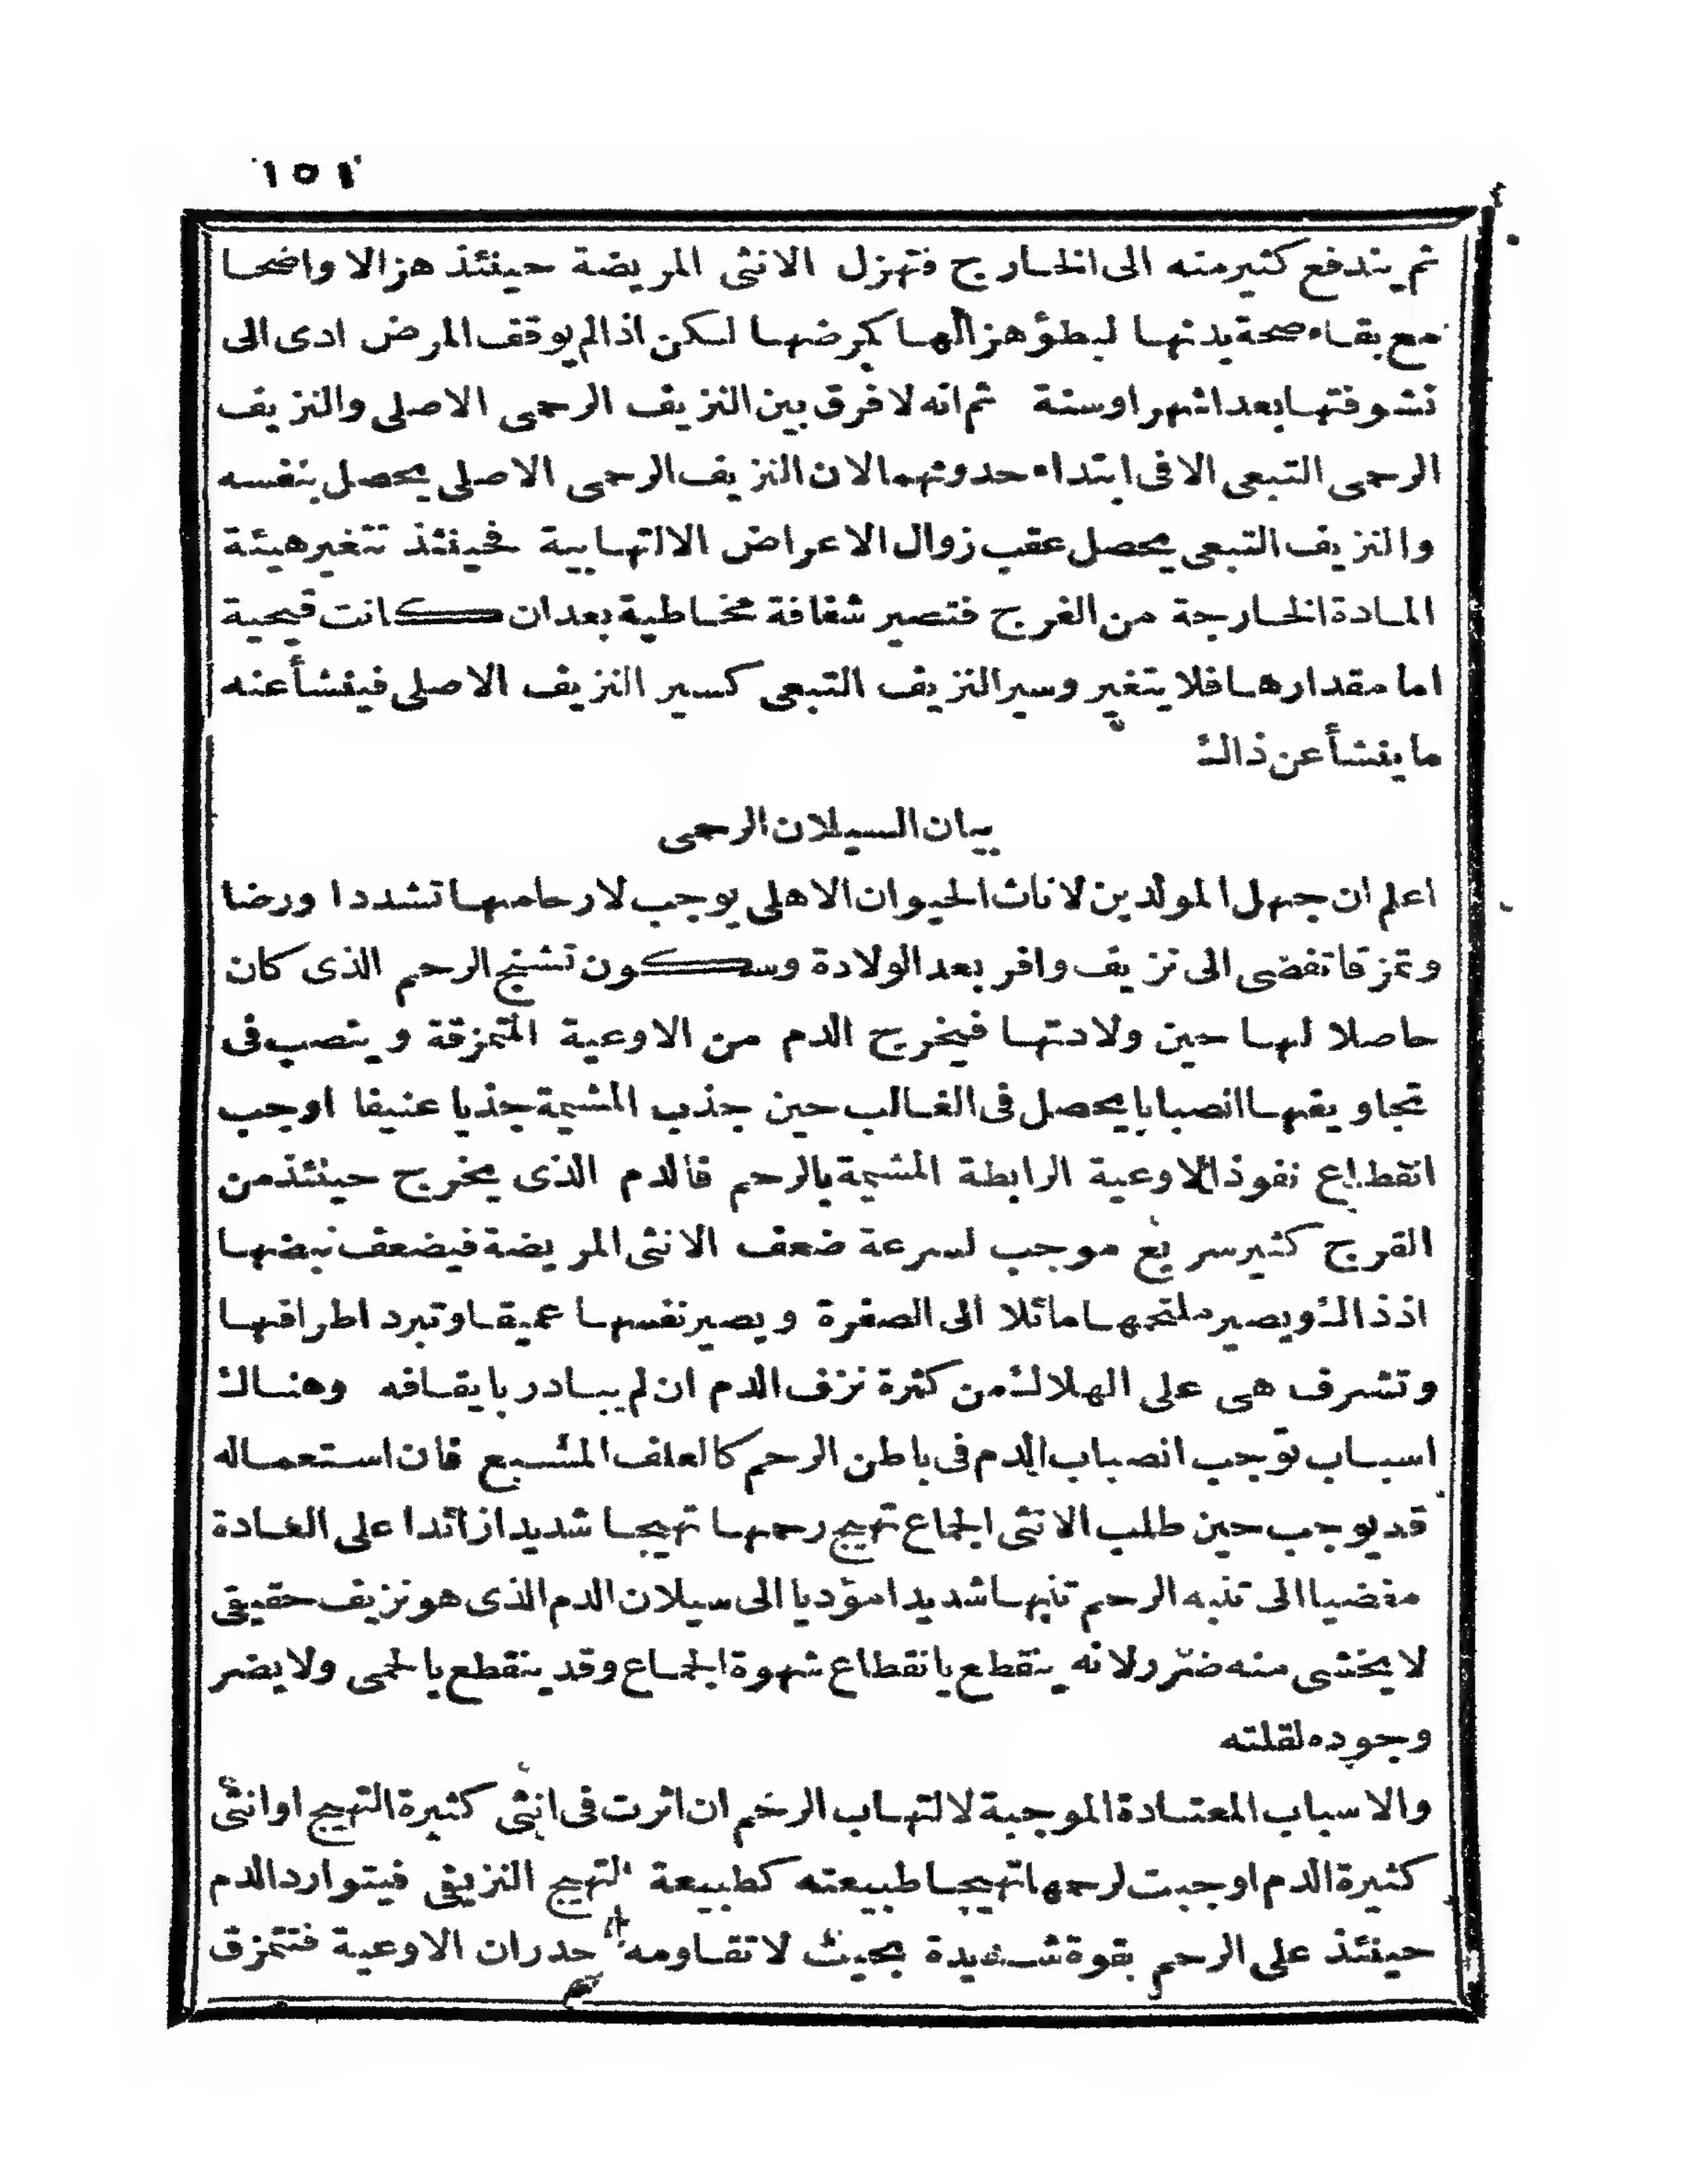 ١٥١
ثم يندفع كثير منه الى الخارج فتهزل الانثى المريضة حينئذ هزالا واضحا
مع بقاء صحة بدنها لبطؤ هزالها كمرضها لكن اذالم يوقف المرض ادى الى
نشوفتها بعد اشهر اوسنة ثم انه لا فرق بين النزيف الرحمى الاصلى والنزيف
الرحمى التبعى الا فى ابتداء حدوثهما لان النزيف الرحمى الاصلى يحصل بنفسه
والنزيف التبعى يحصل عقب زوال الاعراض الالتهابية فحينئذ تتغير هيئة
المادة الخارجة من الفرج فتصير شفافة مخاطية بعد ان كانت قيحية
اما مقدارها فلا يتغير وسير النزيف التبعى كسير النزيف الاصلى فينشأ عنه
ما ينشأ عن ذالك
بيان السيلان الرحمى
اعلم ان جهل المولدين لاناث الحيوان الاهلى يوجب لارحامها تشددا ورضا
وتمزقا تفضى الى نزيف وافر بعد الولادة وسكون تشنج الرحم الذى كان
حاصلا لها حين ولادتها فيخرج الدم من الاوعية المتمزقة وينصب فى
تجاويفها انصبابا يحصل فى الغالب حين جذب المشيمة جذبا عنيفا اوجب
انقطاع نفوذ الاوعية الرابطة المشيمة بالرحم فالدم الذى يخرج حينئذ من
الفرج كثير سريع موجب لسرعة ضعف الانثى المريضة فيضعف نبضها
اذ ذالك ويصير ملتحمها مائلا الى الصفرة ويصير نفسها عميقا وتبرد اطرافها
وتشرف هى على الهلاك من كثرة نزف الدم ان لم يبادر بايقافه وهناك
اسباب توجب انصباب الدم فى باطن الرحم كالعلف المشبع فان استعماله
قد يوجب حين طلب الانثى الجماع تهيج رحمها تهيجا شديدا زائدا على العادة
مفضيا الى تنبه الرحم تنبها شديدا مؤديا الى سيلان الدم الذى هو نزيف حقيقى
لا يخشى منه ضرر لانه ينقطع بانقطاع شهوة الجماع وقد ينقطع بالحمى ولا يضر
وجوده لقلته
والاسباب المعتادة الموجبة لالتهاب الرحم ان اثرت فى انثى كثيرة التهيج او انثى
كثيرة الدم اوجبت لرحمها تهيجا طبيعته كطبيعة التهيج النزيفى فيتوارد الدم
حينئذ على الرحم بقوة شديدة بحيث لا تقاومه جدران الاوعية فتتمزق